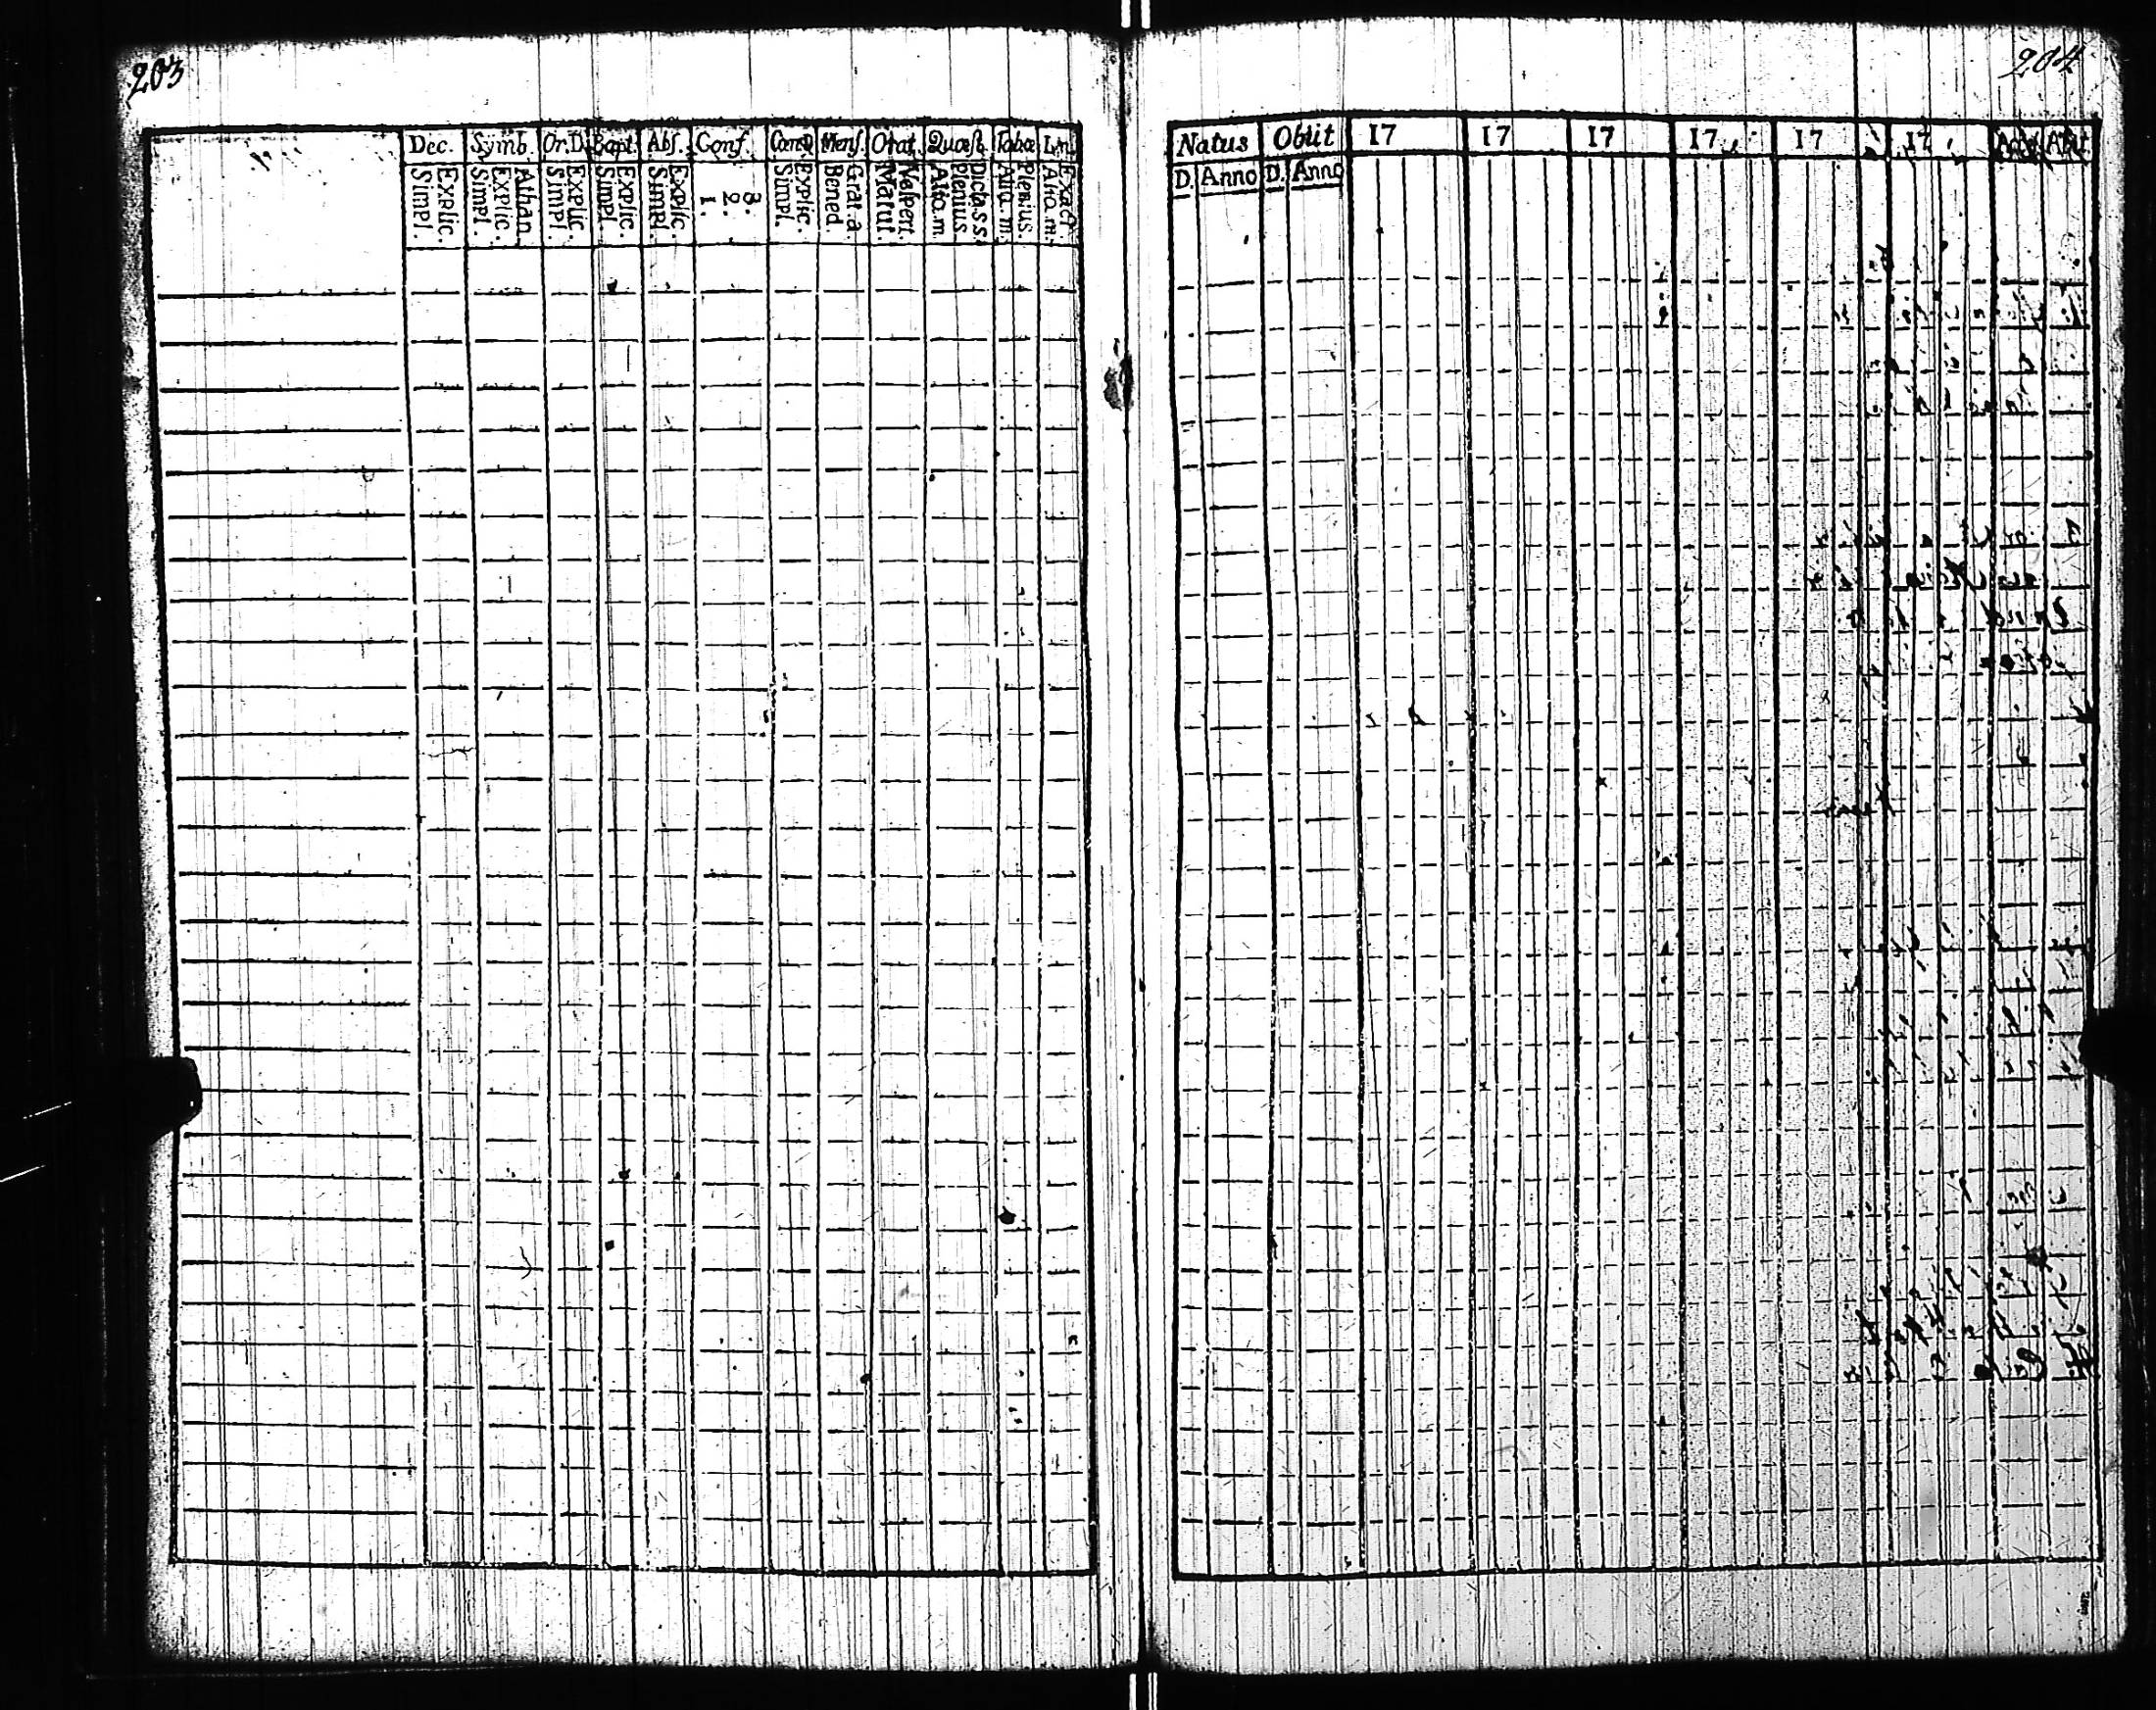 203
Dec. Symb. Or.D. Bapt. Abs. Conf. Cœn.D. Mens. Orat. Quæst. Tabæ
Explic. Simpl.
Athan. Explic. Simpl.
Explic. Simpl.
Explic. Simpl.
Explic. Simpl.
3. 2. 1.
Explic. Simpl.
Grat.a. Bened.
Vespert. Matut.
Dicta.s.s. Plenius. Alio.m.
Plenius. Aliq.m.
Exact. Aliq.m.
204
Natus Obiit 17 17 17 17 17 17 Abiit
D. Anno D. Anno